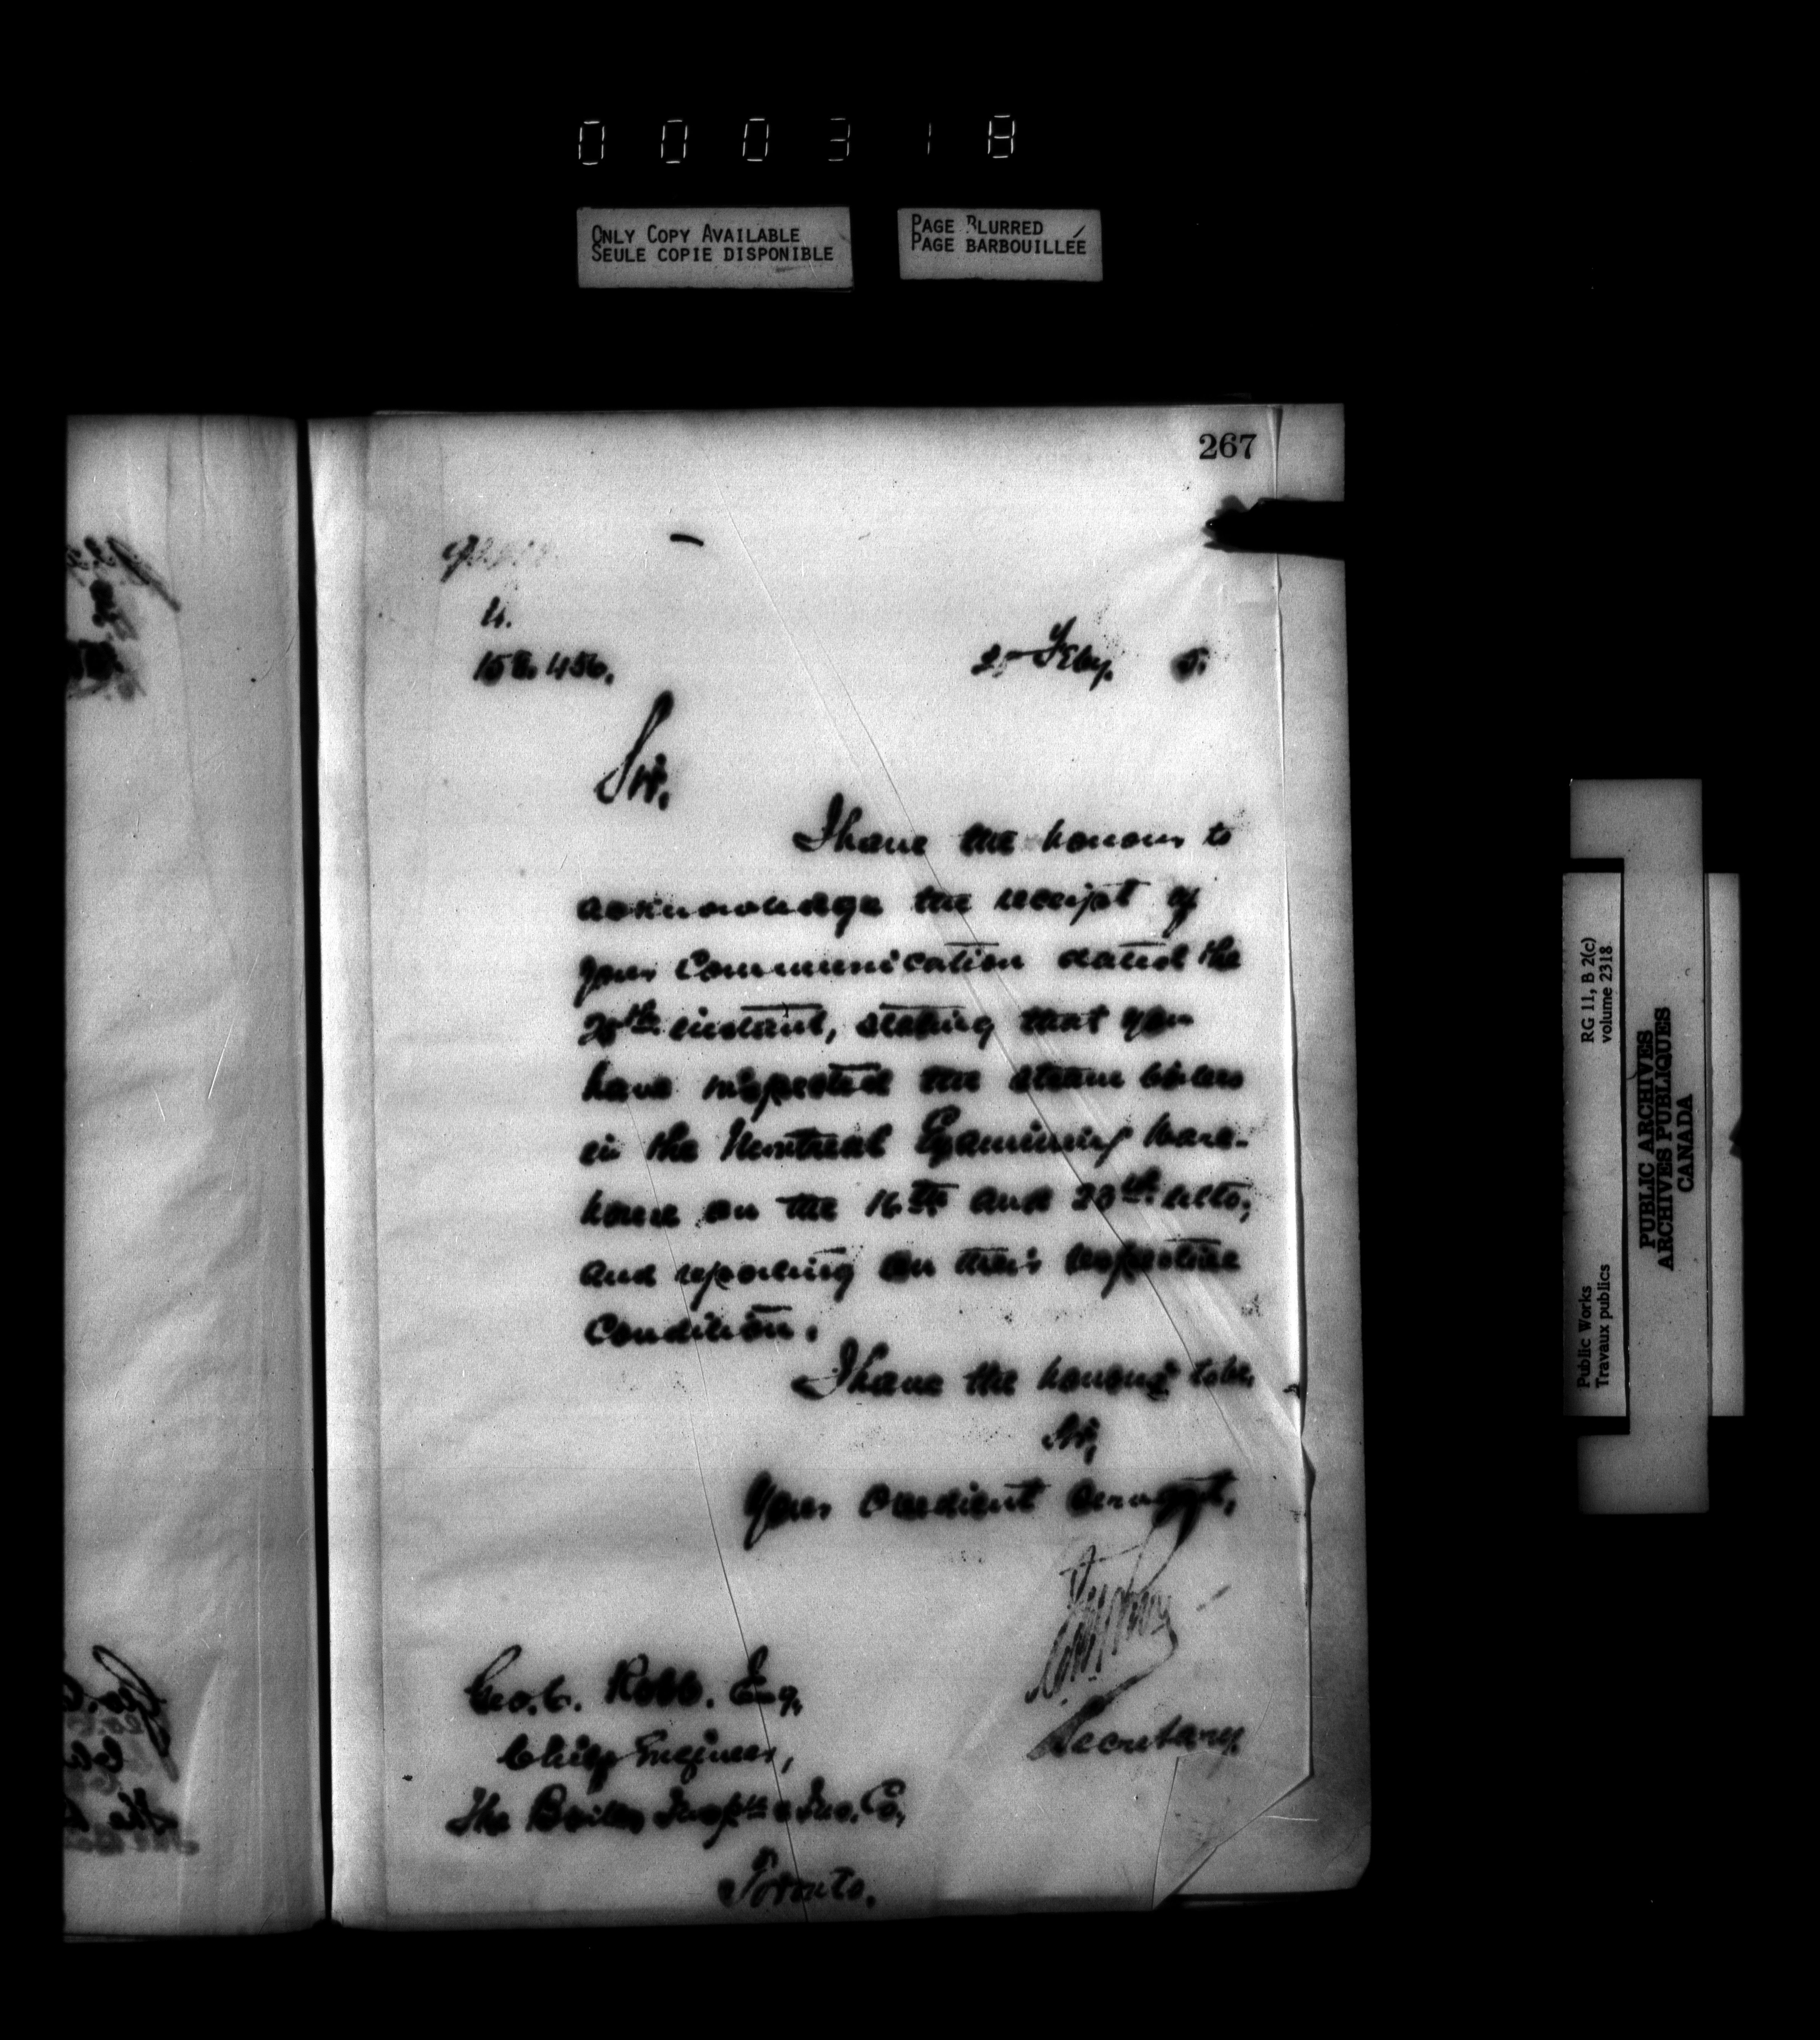 000318
ONLY COPY AVAILABLE
SEULE COPIE DISPONIBLE
PAGE BLURRED
PAGE BARBOUILLÉE
267
4.
158.456.
Feby. 5.
Sir,
I have the honour to
acknowledge the receipt of
your Communication dated the
instant, stating that you
have inspected the steam boilers
in the Montreal Examining Ware-
house on the 16th and 28th ulto,
and reporting on their respective
Condition.
I have the honour to be,
Sir,
Your obedient servant,
Secretary.
Geo. C. Robb. Esq.
Chief Engineer,
The Boiler Inspn & Ins. Co.,
Toronto.
Public Works
Travaux publics
RG 11, B 2(c)
volume 2318
PUBLIC ARCHIVES
ARCHIVES PUBLIQUES
CANADA